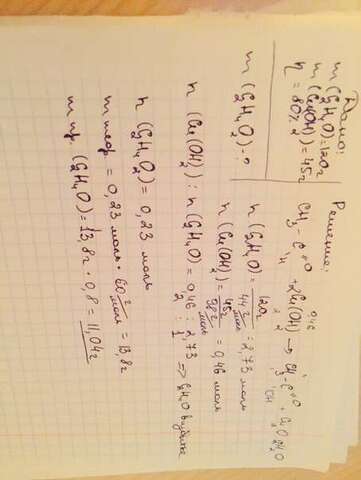 Дано:
m(C₂H₄O)=120г
m(Cu(OH)₂)=45г
η = 80%
m(C₂H₄O₂)-?
Решение:
0,46
CH₃-C=O H + 2Cu(OH)₂ → CH₃-C=O OH + Cu₂O 2H₂O
n(C₂H₄O)=120г/44 г/моль = 2,73 моль
n(Cu(OH)₂)=45г/98 г/моль = 0,46 моль
n(Cu(OH)₂) : n(C₂H₄O) = 0,46/2 : 2,73/1 ⇒ C₂H₄O в избытке
n(C₂H₄O₂) = 0,23 моль
m теор = 0,23 моль · 60 г/моль = 13,8г
m пр. (C₂H₄O) = 13,8г · 0,8 = 11,04г